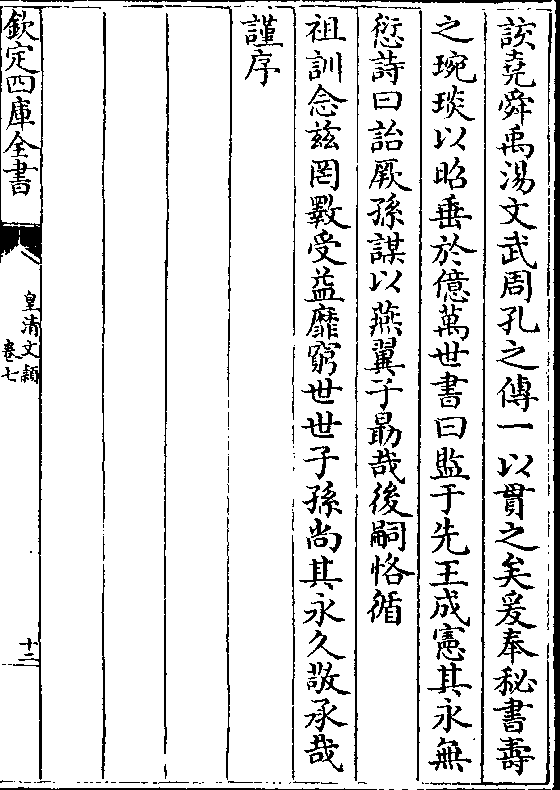 該堯舜禹湯文武周孔之傳一以貫之矣爰奉秘書壽
之琬琰以昭垂於億萬世書曰監于先王成憲其永無
愆詩曰詒厥孫謀以燕翼子勗哉後嗣恪循
祖訓念兹罔斁受益靡窮世世子孫尚其永久敬承哉
謹序
欽定四庫全書
皇清文頴
卷七
十二